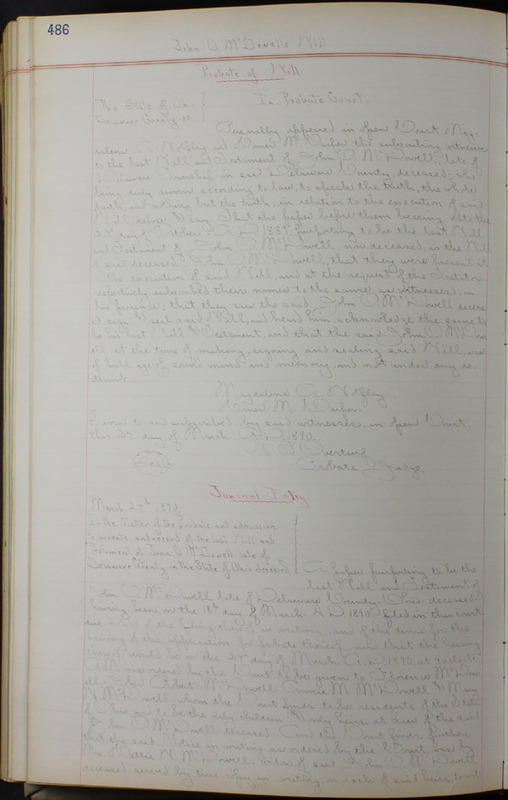 486
John O. McDowells Will
Probate of Will
The State of Ohio
Delaware County ss
In Probate Court.
Personally appeared in open Court Mag-
dalena and the subscribing witnesses
to the last Will and Testament of John O. McDowell, late of
Township in said Delaware County, deceased; who
being duly sworn according to law, to speak the truth, the whole
truth, and nothing but the truth, in relation to the execution of said
Will, depose & say, That the paper before them bearing date the
day of October A.D. 1889 purporting to be the last Will
and Testament of John O. McDowell, now deceased, is the Will
of said deceased John O. McDowell, that they were present at
the execution of said Will, and at the request of the Testator
respectively subscribed their names to the same, as witnesses, in
his presence; that they saw the said John O. McDowell
sign & seal said Will, and heard him acknowledge the same to
be his last Will & Testament, and that the said John O. McDow-
ell at the time of making, signing and sealing said Will, was
of full age, of sound mind and memory, and not under any re-
straint.
Magdalena
M.
Sworn to and subscribed by said witnesses, in open Court
this 27 day of March A.D. 1890.
Seal
Probate Judge
Journal Entry
March 27th 1890
In the Matter of the probate and admission
to probate and record of the last Will and
Testament of John O. McDowell late of
Delaware County in the State of Ohio deceased
A paper purporting to be the
last Will and Testament of
John O. McDowell late of Delaware County, Ohio deceased
having been, on the 18th day of March A.D. 1890 filed in this court
due notice of the filing thereof in writing, and of the time for the
hearing of the application for probate thereof, and that the hearing
thereof would be on the 27 day of March A.D. 1890, at 9 o'clock
A.M. was ordered by the Court to be given to Florence McDow-
ell, McDowell, Annie M. McDowell & Mary
N. McDowell, whom the Court finds to be residents of the State
of Ohio and to be the only children & only heirs at law of the said
John O. McDowell deceased. And the Court finds further
that the said notice in writing as ordered by the Court was by
McDowell, widow of said John O. McDowell
deceased served by true copy in writing, on each of said heirs, to wit